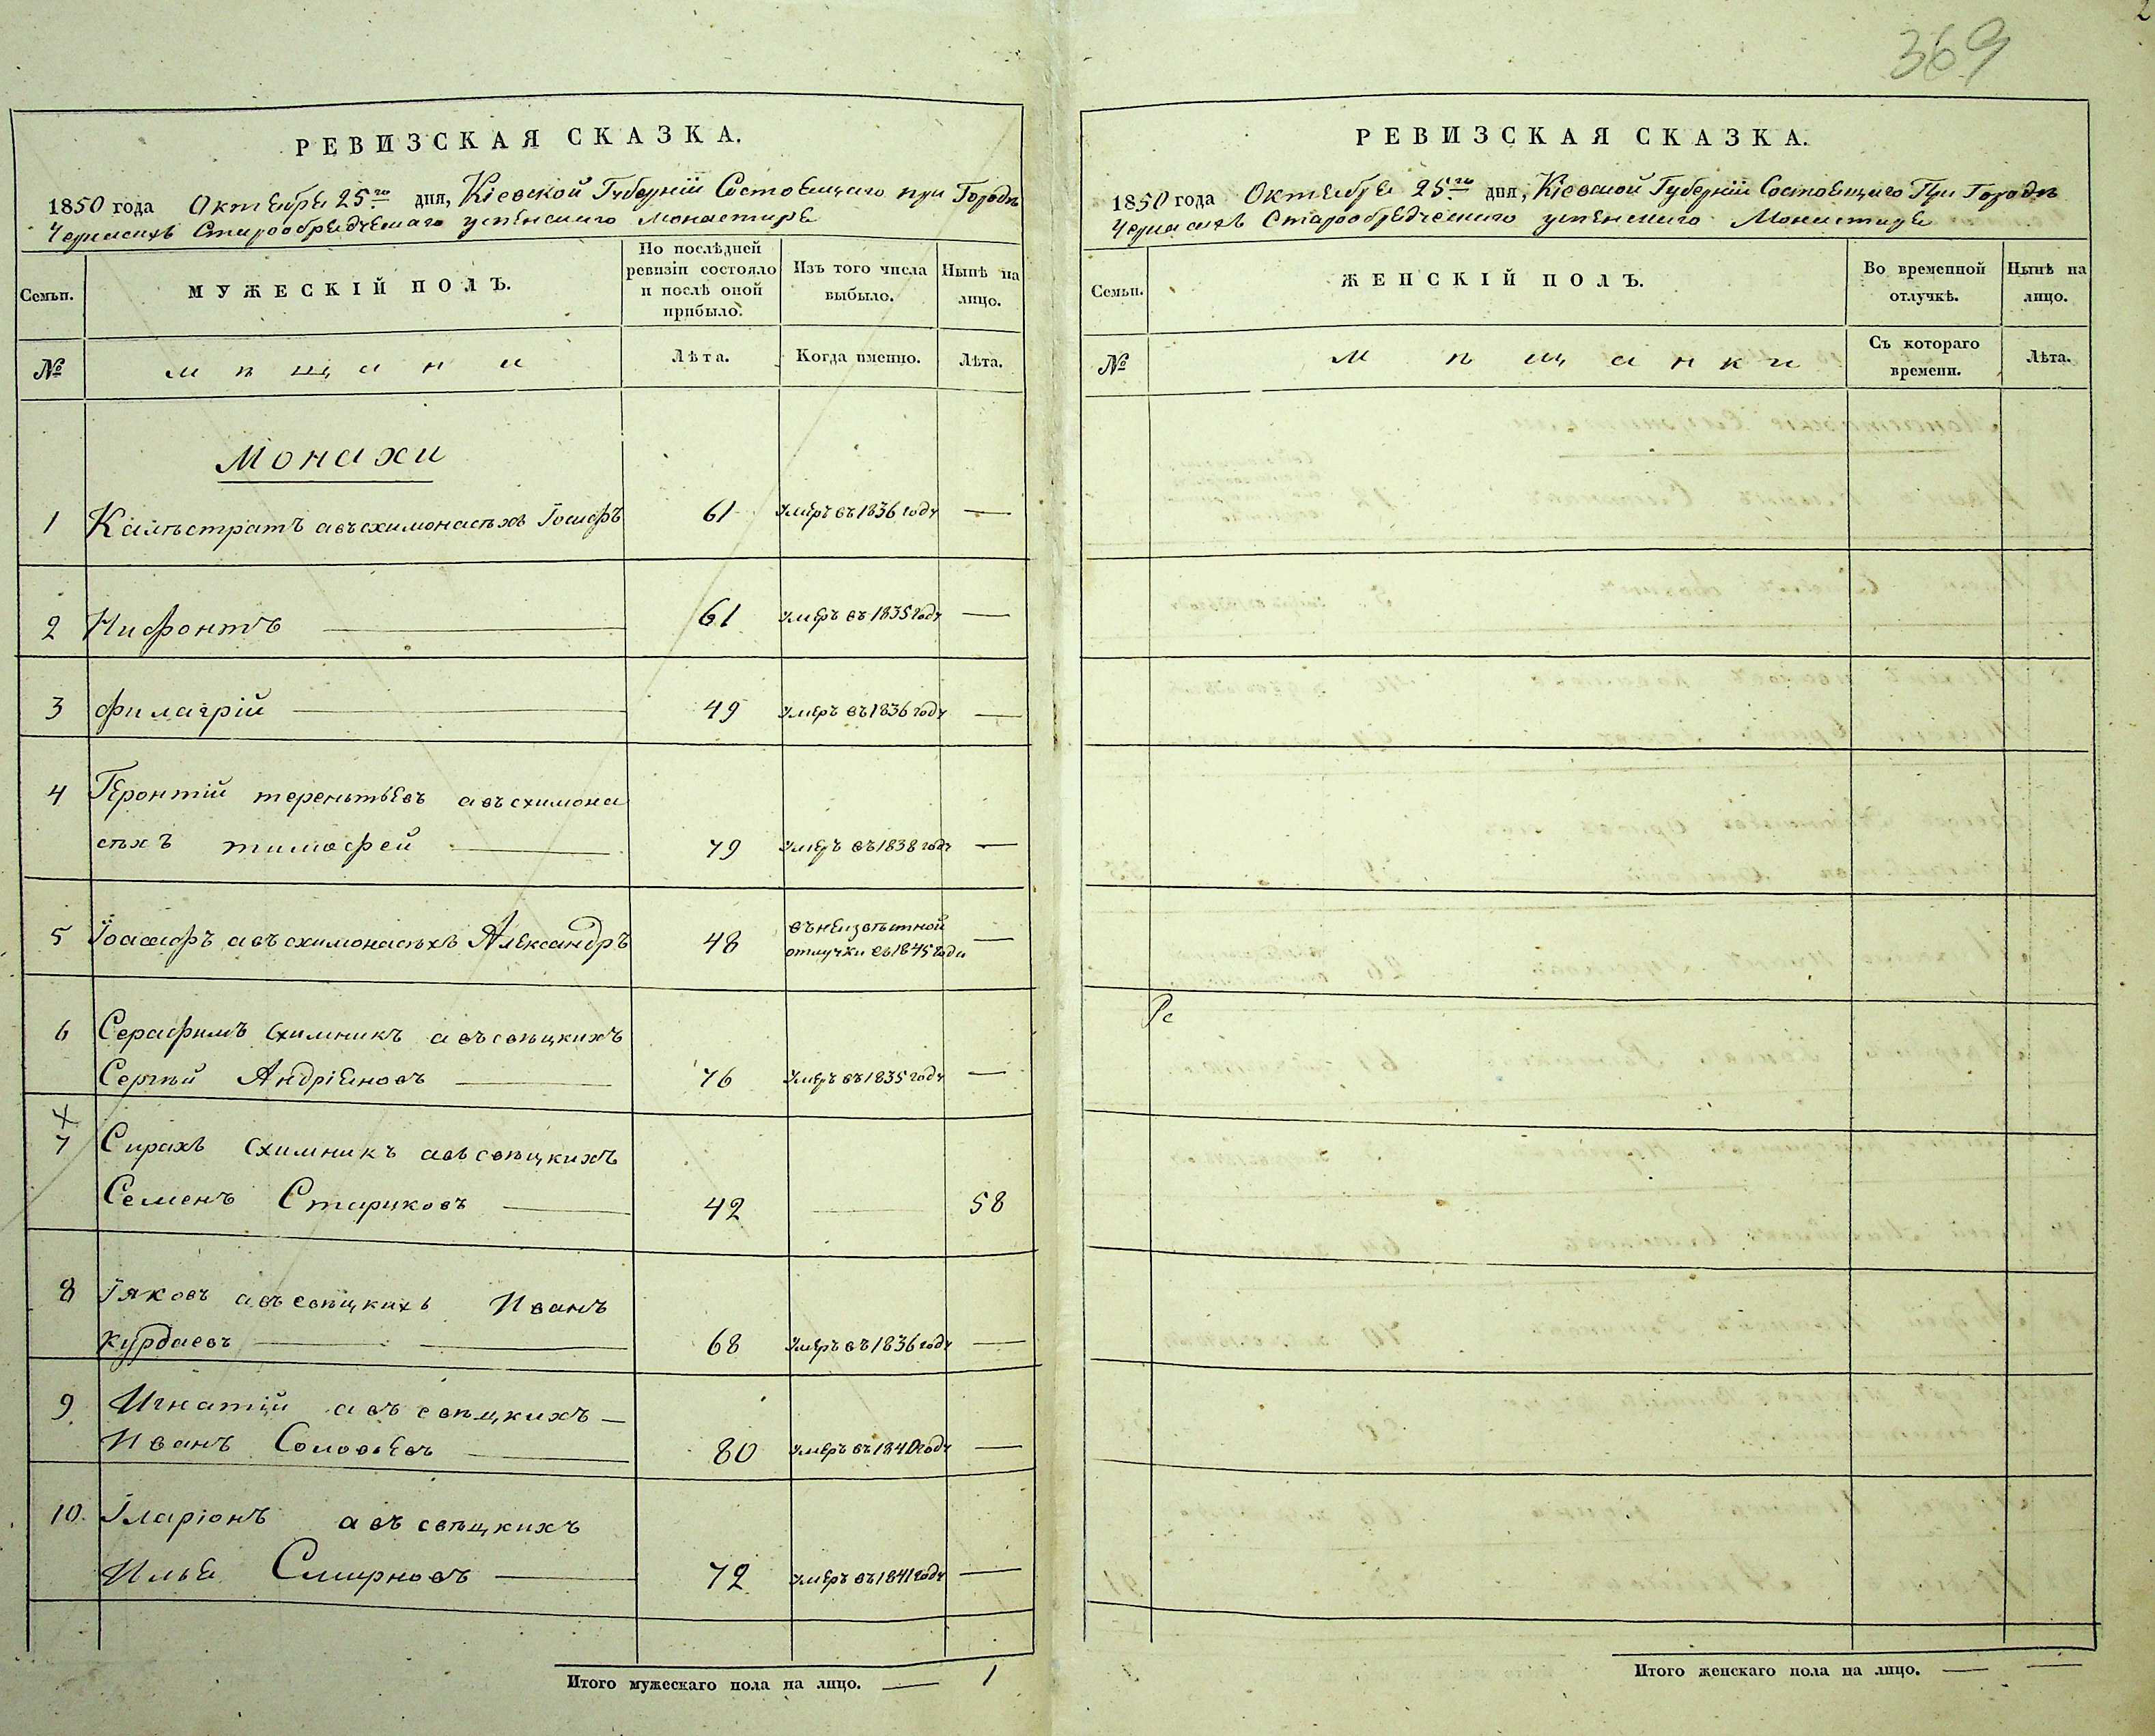 2
369
РЕВИЗСКАЯ СКАЗКА.
1850 года Октебре 25го дня, Кіевской Губерніи Состоещаго при Городѣ
Черкасихъ Старообредческаго успенского монастире
Семьи.
МУЖЕСКІЙ ПОЛЪ.
По послѣдней ревизіи состояло и послѣ оной прибыло.
Изъ того числа выбыло.
Нынѣ на лицо.
№
мѣщани
Лѣта.
Когда именно.
Лѣта.
Монахи
1 Калѣстратъ авъсхимонасѣхъ Іосифъ 61 умеръ въ 1836 году —
2 Нифонтъ — 61 умеръ въ 1835 году —
3 филагрій — 49 умеръ въ 1836 году —
4 Геронтій тереньтьевъ авъсхимона
сѣхъ тимофей — 79 умеръ въ 1838 году —
5 Іоасафъ авъсхимонасѣхъ Александръ 48 въ неизвѣстной
отлучки съ 1845 года —
6 Серафимъ схимникъ авъсвѣцкихъ
Сергѣй Андріеновъ — 76 умеръ въ 1835 году —
7 Сирахъ схимникъ авъсвѣцкихъ
Семенъ Стариковъ — 42 — 58
8 Іяковъ авъсвѣцкихъ Иванъ
Курбаевъ — 68 умеръ въ 1836 году —
9 Игнатій авъ свѣцкихъ —
Иванъ Соловьевъ — 80 умеръ въ 1840 году —
10. Іларіонъ авъ свѣцкихъ
Илье Смирновъ — 72 умеръ въ 1841 году —
Итого мужескаго пола на лицо. — 1
РЕВИЗСКАЯ СКАЗКА.
1850 года Октебре 25го дня, Кіевской Губерніи Состоещаго При Городѣ
Черкасихъ Старообредческого успенского Монастире
Семьи.
ЖЕНСКІЙ ПОЛЪ.
Во временной отлучкѣ.
Нынѣ на лицо.
№
мѣщанки
Съ котораго времени.
Лѣта.
Рс
Итого женскаго пола на лицо. — —